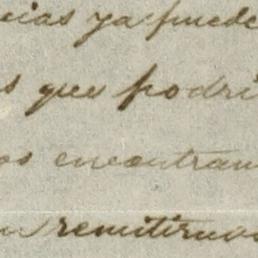 cias ya puede
s que podri
os encontram
n remitirnos